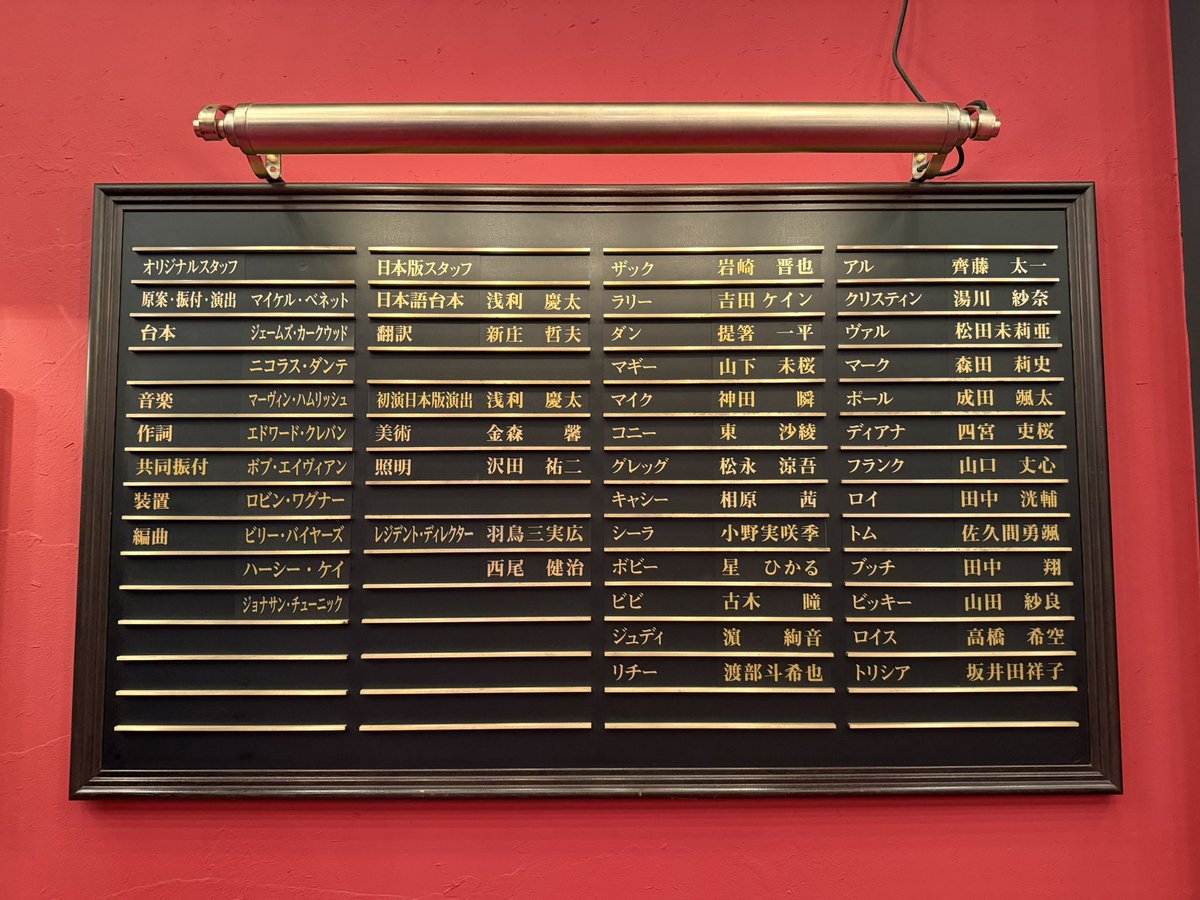 オリジナルスタッフ
原案・振付・演出 マイケル・ベネット
台本 ジェームズ・カークウッド
ニコラス・ダンテ
音楽 マーヴィン・ハムリッシュ
作詞 エドワード・クレバン
共同振付 ボブ・エイヴィアン
装置 ロビン・ワグナー
編曲 ビリー・バイヤーズ
ハーシー・ケイ
ジョナサン・チューニック
日本版スタッフ
日本語台本 浅利 慶太
翻訳 新庄 哲夫
初演日本版演出 浅利 慶太
美術 金森 馨
照明 沢田 祐二
レジデント・ディレクター 羽鳥三実広
西尾 健治
ザック 岩崎 晋也
ラリー 吉田ケイン
ダン 提箸 一平
マギー 山下 未桜
マイク 神田 瞬
コニー 東 沙綾
グレッグ 松永 涼吾
キャシー 相原 茜
シーラ 小野実咲季
ボビー 星 ひかる
ビビ 古木 瞳
ジュディ 濵 絢音
リチー 渡部斗希也
アル 齊藤 太一
クリスティン 湯川 紗奈
ヴァル 松田未莉亜
マーク 森田 莉史
ポール 成田 颯太
ディアナ 四宮 吏桜
フランク 山口 丈心
ロイ 田中 洸輔
トム 佐久間勇颯
ブッチ 田中 翔
ビッキー 山田 紗良
ロイス 高橋 希空
トリシア 坂井田祥子